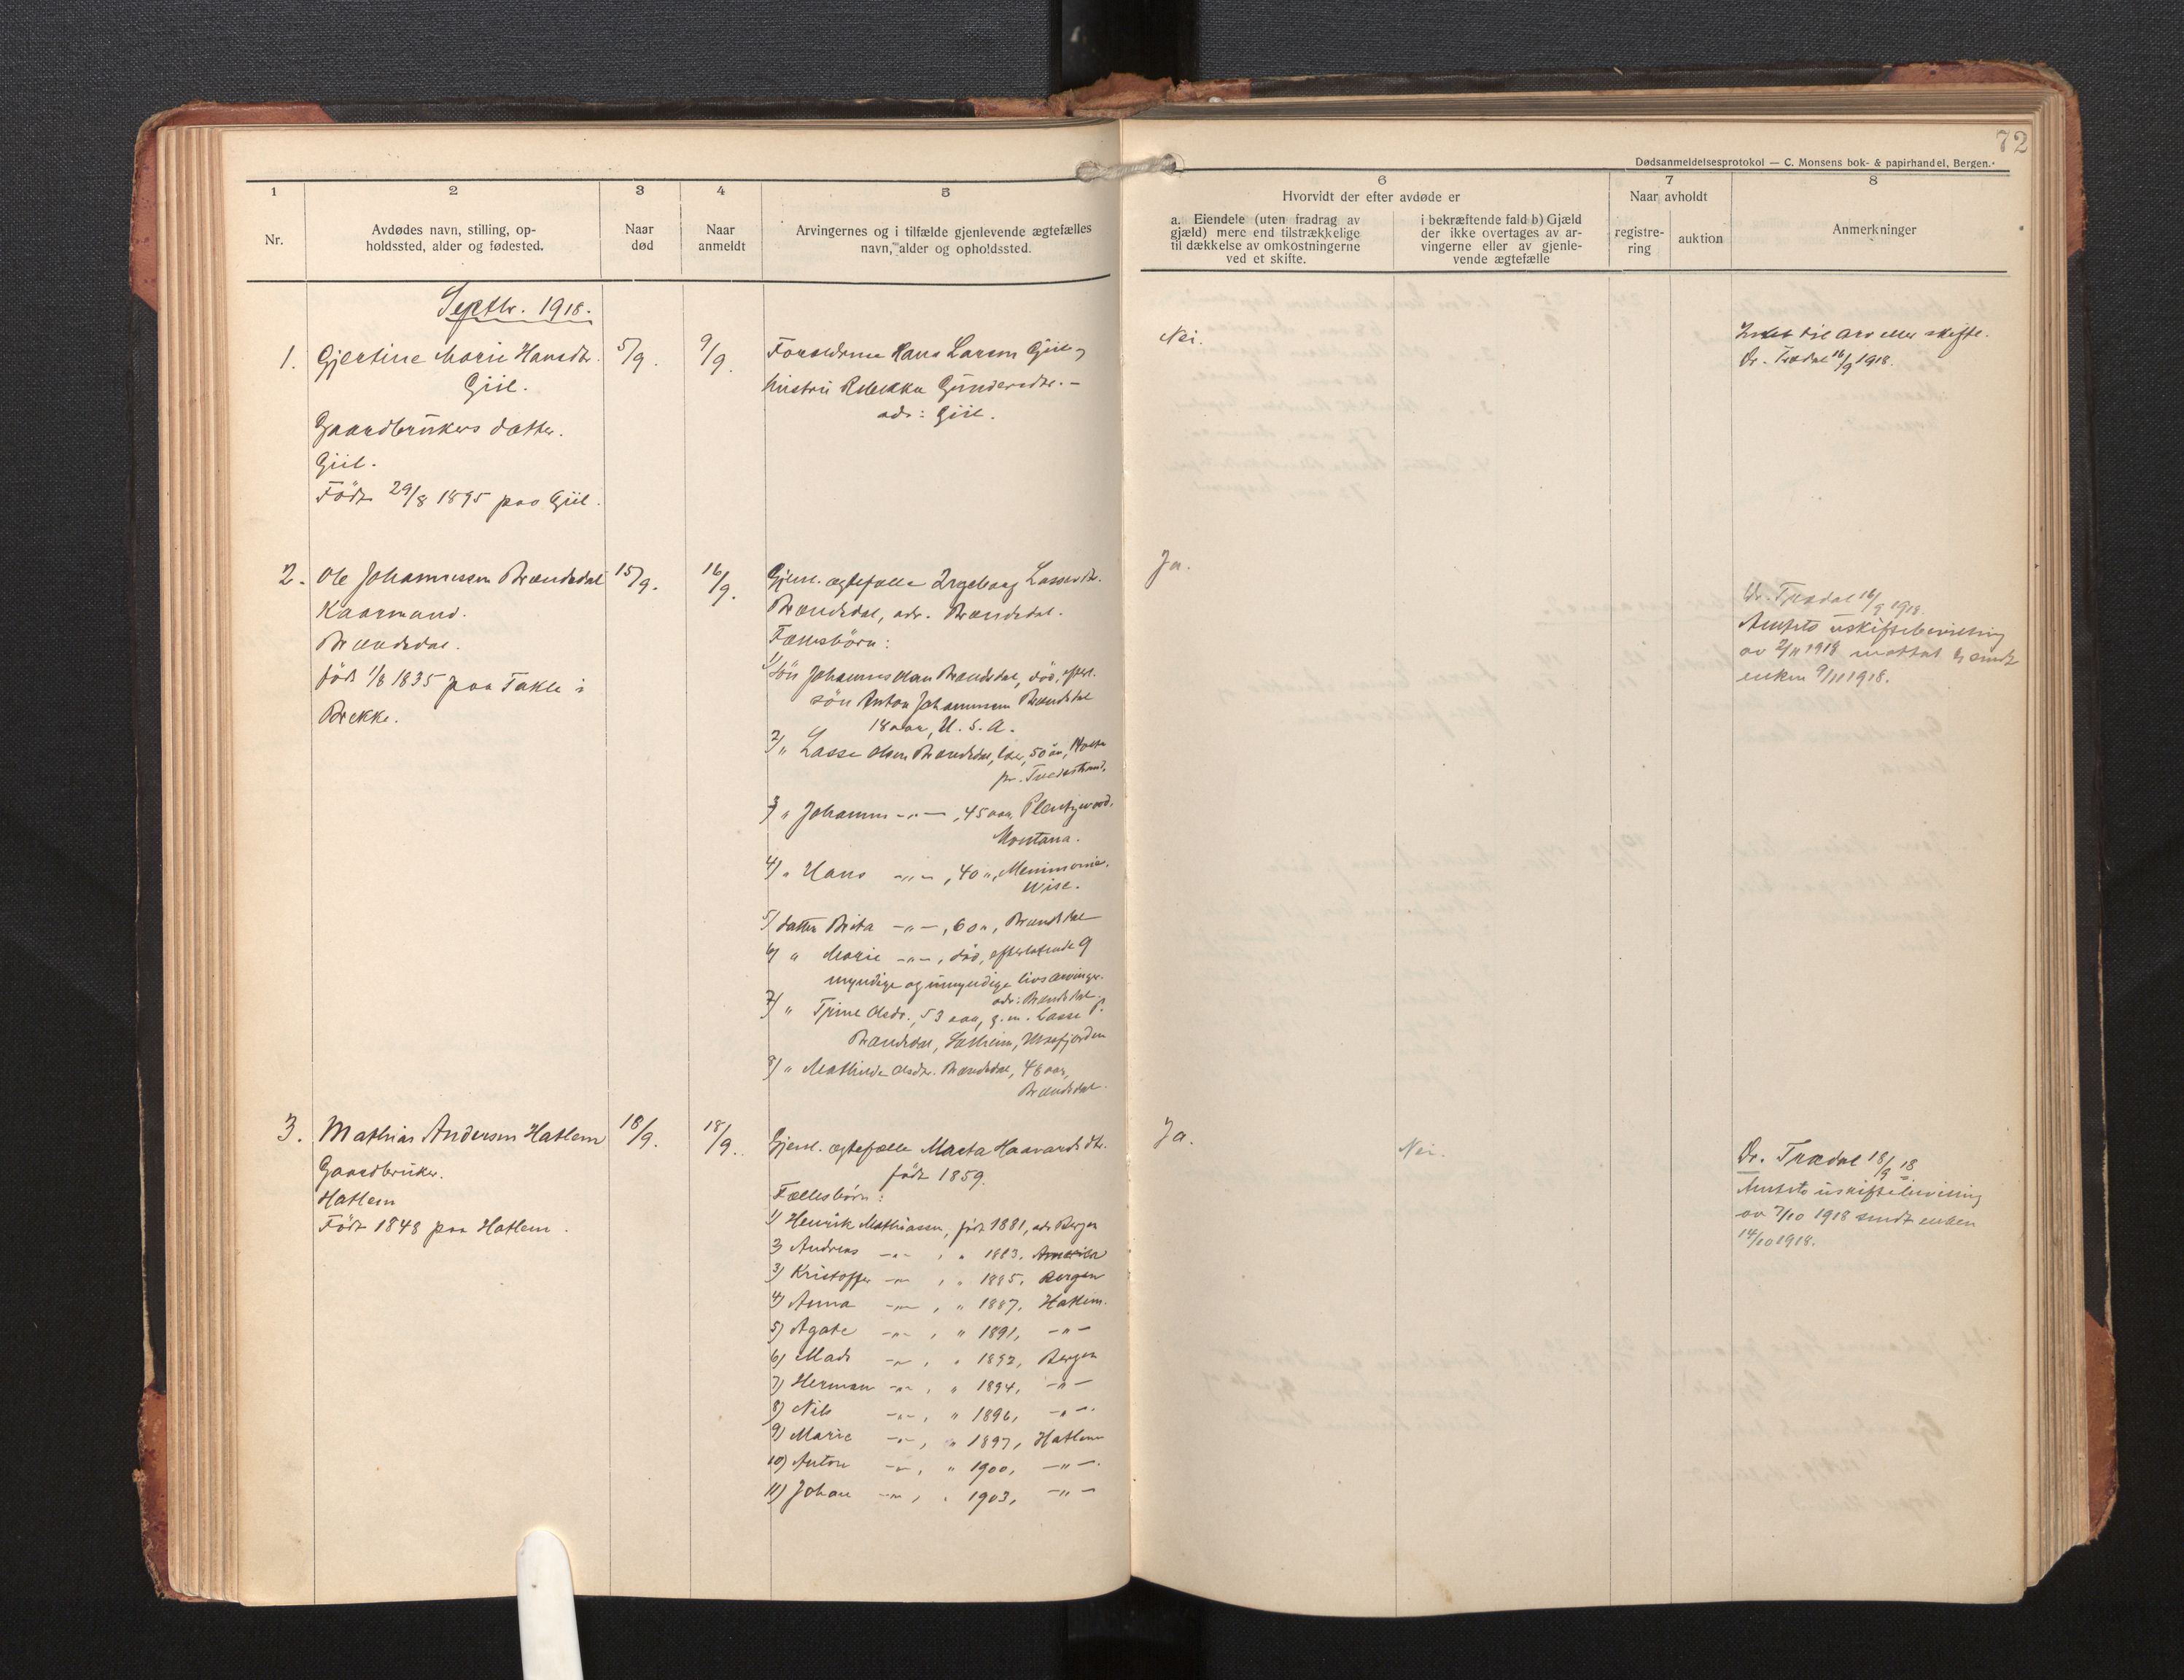 72
Dødsanmeldelsesprotokol — C. Monsens bok- & papirhandel, Bergen.
1
2
3
4
5
6
7
8
Nr.
Avdødes navn, stilling, op-
holdssted, alder og fødested.
Naar
død
Naar
anmeldt
Arvingernes og i tilfælde gjenlevende ægtefælles
navn, alder og opholdssted.
Hvorvidt der efter avdøde er
a. Eiendele (uten fradrag av
gjæld) mere end tilstrækkelige
til dækkelse av omkostningerne
ved et skifte.
i bekræftende fald b) Gjæld
der ikke overtages av ar-
vingerne eller av gjenle-
vende ægtefælle
Naar avholdt
registre-
ring
auktion
Anmerkninger
Septbr. 1918.
1. Gjertine Marie Hansdtr.
Giil.
Gaardbrukers datter.
Giil.
Född 29/8 1895 paa Giil.
5/9.
9/9.
Forældrene Hans Larsen Giil og
hustru Rebekka Gundersdtr. —
adr: Giil.
Nei.
Intet til arv eller skifte.
Or. Trædal 16/9 1918.
2. Ole Johannessen Brændsdal
Kaarmand.
Brændsdal.
född 1/8 1835 paa Takle i
Brekke.
15/9.
16/9.
Gjenl. ægtefælle Ingeborg Lassesdtr.
Brændsdal, adr. Brændsdal.
Fællesbörn:
1/ Sön Johannes Olsen Brændsdal, död, efterl.
sön Anton Johannessen Brændsdal
18 aar, U. S. A.
2/ " Lasse Olsen Brændsdal, 50 år,
pr. Tvedestrand.
3/ " Johannes -"- , 45 aar, Plentywood,
Montana.
4/ " Hans -"- , 40 ", Menimonie,
Wisc.
5/ datter Brita -"- , 60 ", Brændsdal
6/ " Marie -"- , död, efterlatende 9
myndige og umyndige livsarvinger.
adr: Brændsdal
7/ " Tjine Olsdtr., 53 aar, g. m. Lasse P.
Brændsdal, Solheim,
8/ " Mathilde Olsdtr. Brændsdal, 48 aar,
Brændsdal.
Ja.
Or. Trædal 16/9 1918.
Amtets uskiftebevilling
av 2/11 1918 mottat & sendt
enken 9/11 1918.
3. Mathias Andersen Hatlem
Gaardbruker.
Hatlem
Född 1848 paa Hatlem.
18/9.
18/9.
Gjenl. ægtefælle Marta Haavardsdtr.
född 1859.
Fællesbörn:
1) Henrik Mathiassen, född 1881, adr Bergen
2) Andreas -"- , " 1883, Amerika
3) Kristoffer -"- , " 1885, Bergen
4) Anna -"- , " 1887, Hatlem.
5) Agate -"- , " 1891, -"-
6) Mads -"- , " 1892, Bergen
7) Herman -"- , " 1894, -"-
8) Nils -"- , " 1896, -"-
9) Marie -"- , " 1897, Hatlem
10) Anton -"- , " 1900, -"-
11) Johan -"- , " 1903, -"-
Ja.
Nei.
Or. Trædal 18/9 18.
Amtets uskiftebevilling
av 7/10 1918 sendt enken
14/10 1918.